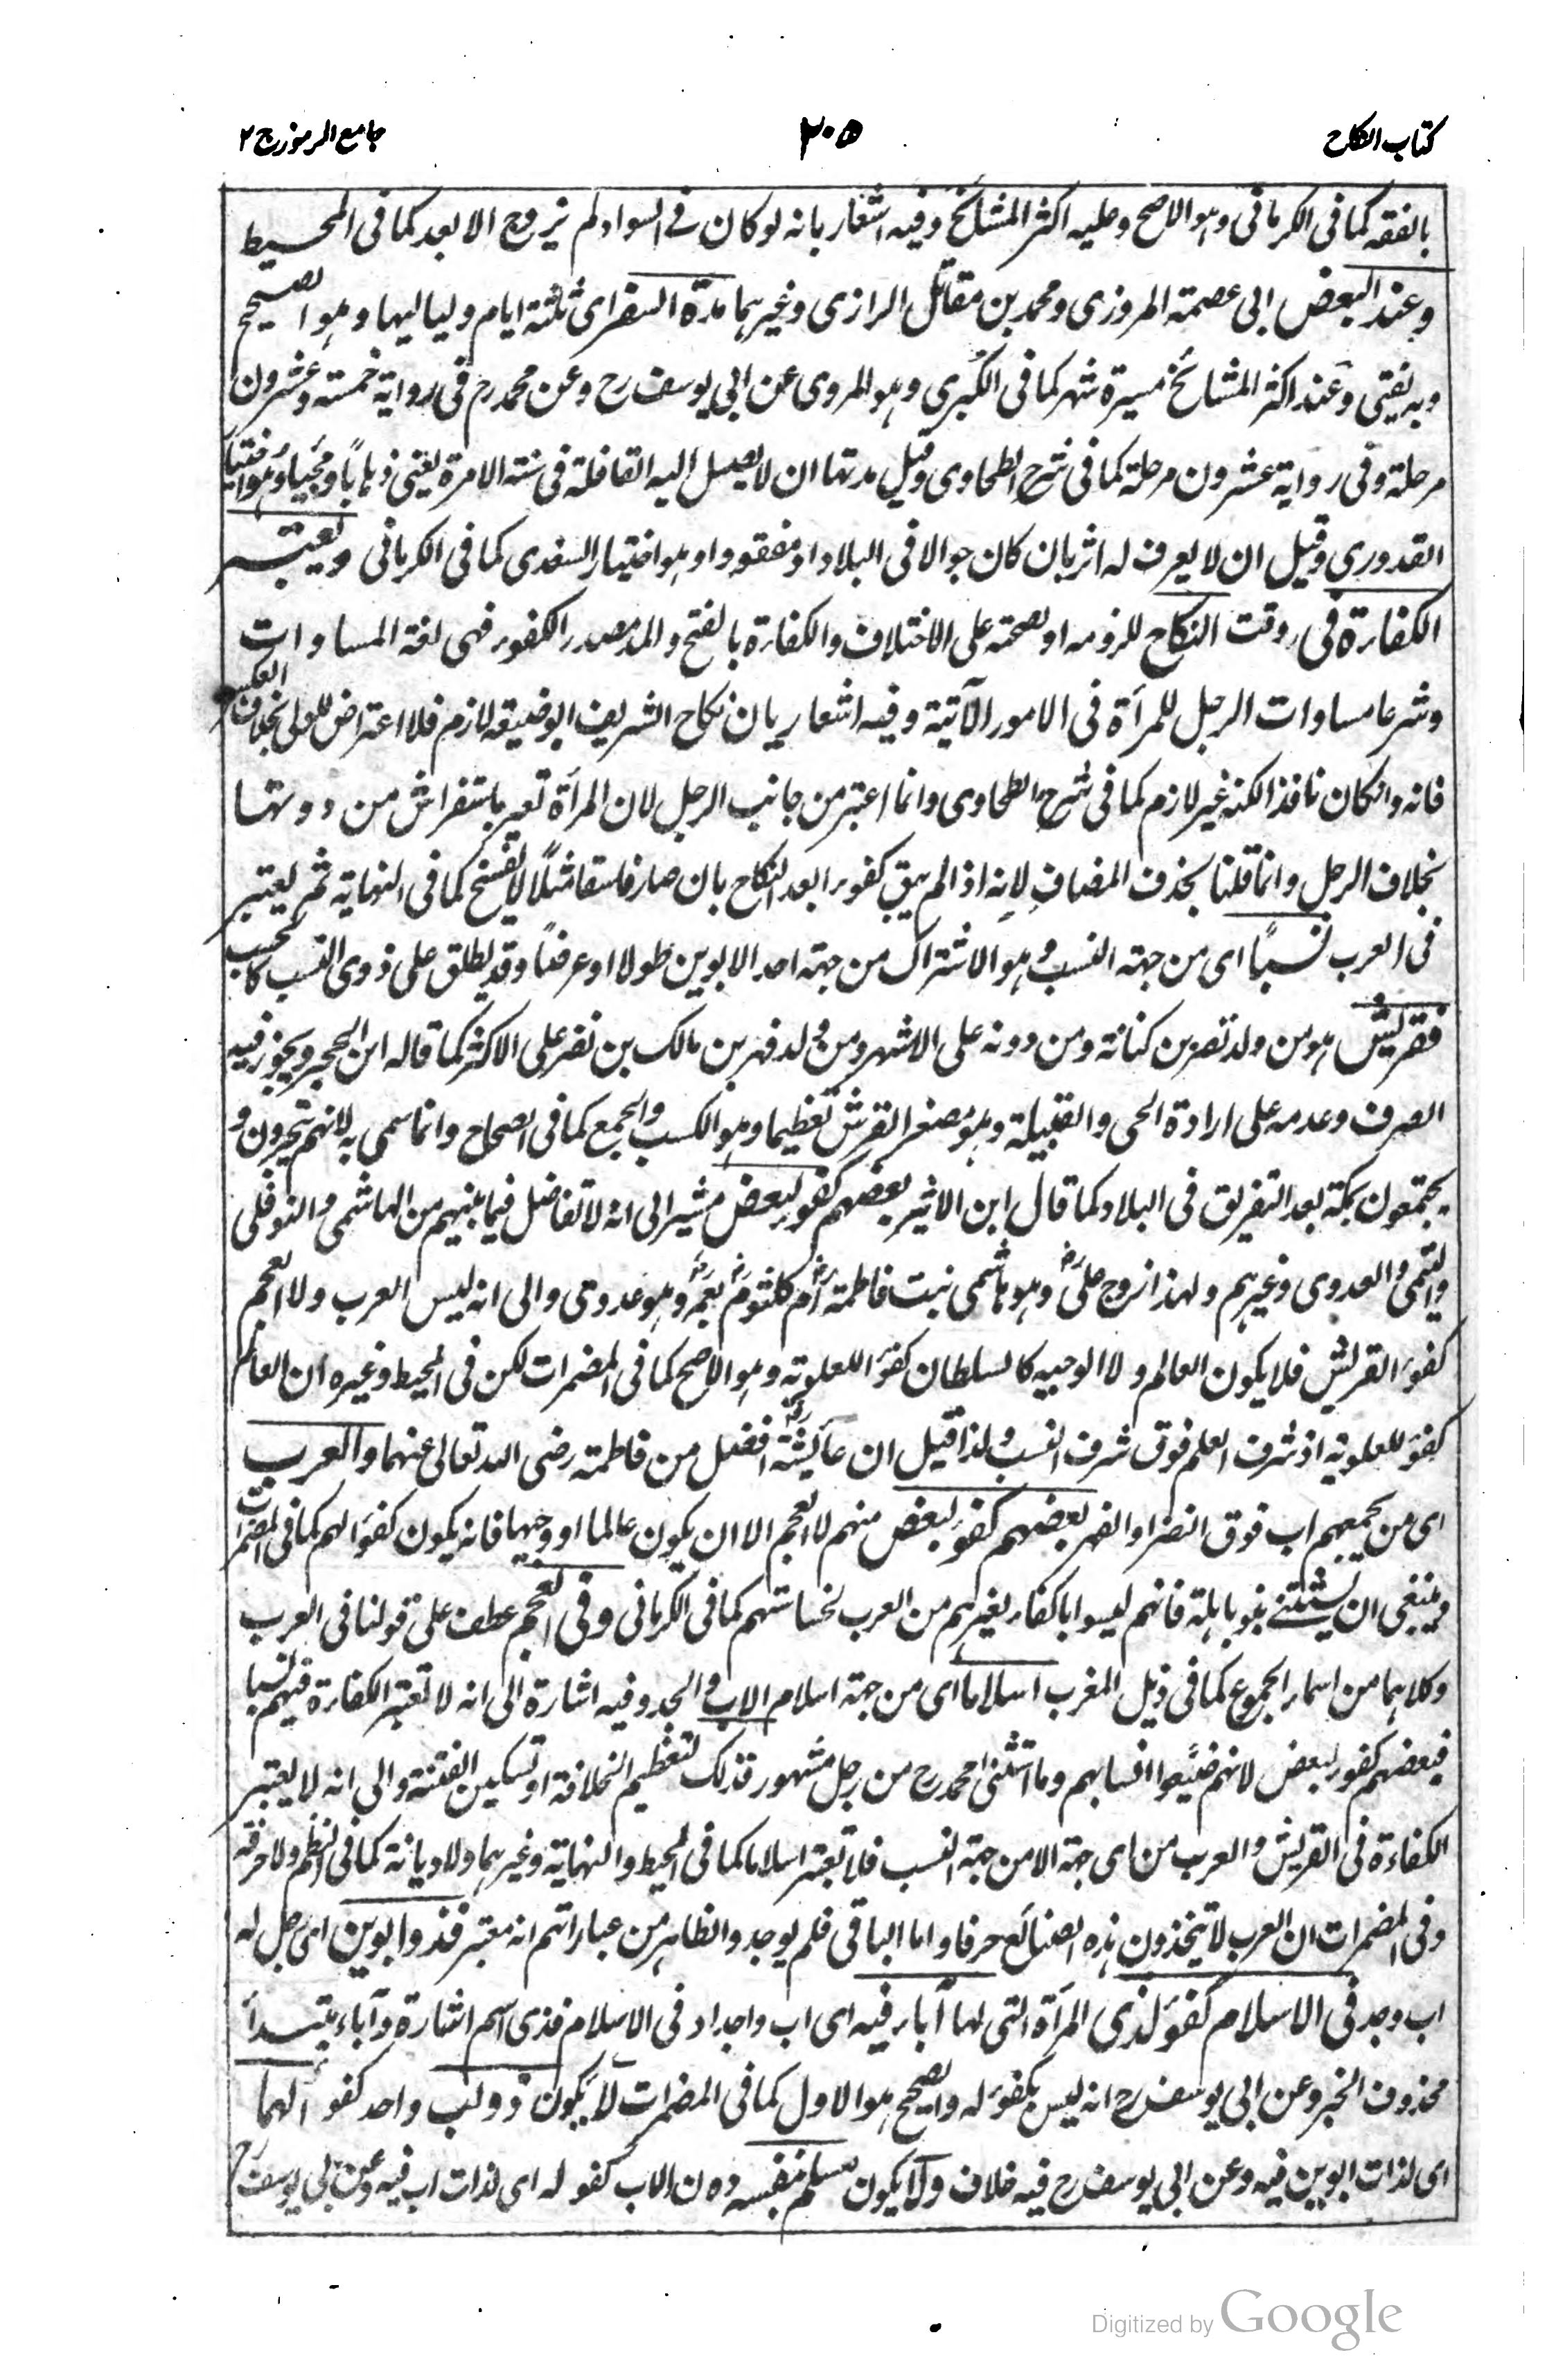 كتاب النكاح
٢٠٥
جامع الرموز ج ٢
بالفقه كما في الكرماني وهو الاصح وعليه اكثر المشائخ وفيه اشعار بانه لو كان في السواد لم يزوج الابعد كما في المحيط
وعند البعض ابي عصمة المروزي ومحمد بن مقاتل الرازي وغيرهما مدة السفر اي ثلثة ايام ولياليها وهو الصحيح
وبه يفتى وعند اكثر المشائخ مسيرة شهر كما في الكبرى وهو المروي عن ابي يوسف رح وعن محمد رح في رواية خمسة وعشرون
مرحلة وفي رواية عشرون مرحلة كما في شرح الطحاوي وقيل مدتها ان لا يصل اليه القافلة في سنة الا مرة يعني ذهاباً ومجيئا وهو اختيار
القدوري وقيل ان لا يعرف له اثر بان كان جوالا في البلاد او مفقودا وهو اختيار السغدي كما في الكرماني ويعتبر
الكفاءة في وقت النكاح للزومه او لصحته على الاختلاف والكفاءة بالفتح والمد مصدر الكفوء فهي لغة المساوات
وشرعا مساوات الرجل للمرأة في الامور الآتية وفيه اشعار بان نكاح الشريف الوضيعة لازم فلا اعتراض للولي بخلاف العكس
فانه وان كان نافذا لكنه غير لازم كما في شرح الطحاوي وانما اعتبر من جانب الرجل لان المرأة تعير باستفراش من دونها
بخلاف الرجل وانما قلنا بحذف المضاف لانه اذا لم يبق كفوءا بعد النكاح بان صار فاسقا مثلاً لا يفسخ كما في النهاية ثم يعتبر
في العرب نسباً اي من جهة النسب وهو الاشتراك من جهة احد الابوين طولا او عرضاً وقد يطلق على ذوي النسب كالحسب
فقريش هو من ولد نضر بن كنانة ومن دونه على الاشهر ومن ولد فهر بن مالك بن نضر على الاكثر كما قاله ابن الحجر ويجوز فيه
الصرف وعدمه على ارادة الحي والقبيلة وهو مصغر القرش تعظيما وهو الكسب والجمع كما في الصحاح وانما سمي به لانهم يتجرون و
يجتمعون بمكة بعد التفريق في البلاد كما قال ابن الاثير بعضهم كفوء لبعض مشير الى انه لا تفاضل فيما بينهم من الهاشمي والنوفلي
والتيمي والعدوي وغيرهم ولهذا زوج علي رض وهو هاشمي بنت فاطمة رض ام كلثوم رض بعمر رض وهو عدوي والى انه ليس العرب ولا العجم
كفوء القريش فلا يكون العالم ولا الوجيه كالسلطان كفؤ اللعلوية وهو الاصح كما في المضمرات لكن في المحيط وغيره ان العالم
كفؤ للعلوية اذ شرف العلم فوق شرف النسب ولذا قيل ان عائشة رض افضل من فاطمة رضي الله تعالى عنهما والعرب
اي من يجمعهم اب فوق النضر او الفهر بعضهم كفؤ لبعض منهم لا العجم الا ان يكون عالما او وجيها فانه يكون كفؤا لهم كما في المضمرات
وينبغي ان يستثنى بنو باهلة فانهم ليسوا باكفاء لغيرهم من العرب لخساستهم كما في الكرماني وفي العجم عطف على قولنا في العرب
وكلاهما من اسماء الجموع كما في ذيل المغرب اسلاما اي من جهة اسلام الاب والجد وفيه اشارة الى انه لا تعتبر الكفاءة فيهم نسبا
فبعضهم كفوء لبعض لانهم ضيعوا انسابهم وما استثنى محمد رح من رجل مشهور فذلك لتعظيم الخلافة او تسكين الفتنة والى انه لا يعتبر
الكفاءة في القريش والعرب من اي جهة الا من جهة النسب فلا تعتبر اسلاما كما في المحيط والنهاية وغيرهما ولا ديانة كما في النظم ولا حرفة
وفي المضمرات ان العرب لا يتخذون هذه الصنائع حرفا واما الباقي فلم يوجد والظاهر من عباراتهم انه معتبر فذو ابوين اي رجل له
اب وجد في الاسلام كفؤ لذي المرأة التي لها آباء فيه اي اب واجداد في الاسلام فذي اسم اشارة وآباء مبتدأ
محذوف الخبر وعن ابي يوسف رح انه ليس بكفؤ له والصحيح هو الاول كما في المضمرات لا يكون ذو اب واحد كفوءا لهما
اي لذات ابوين فيه وعن ابي يوسف رح فيه خلاف ولا يكون مسلم بنفسه دون الاب كفو له اي لذات اب فيه وعن ابي يوسف رح
Digitized by Google